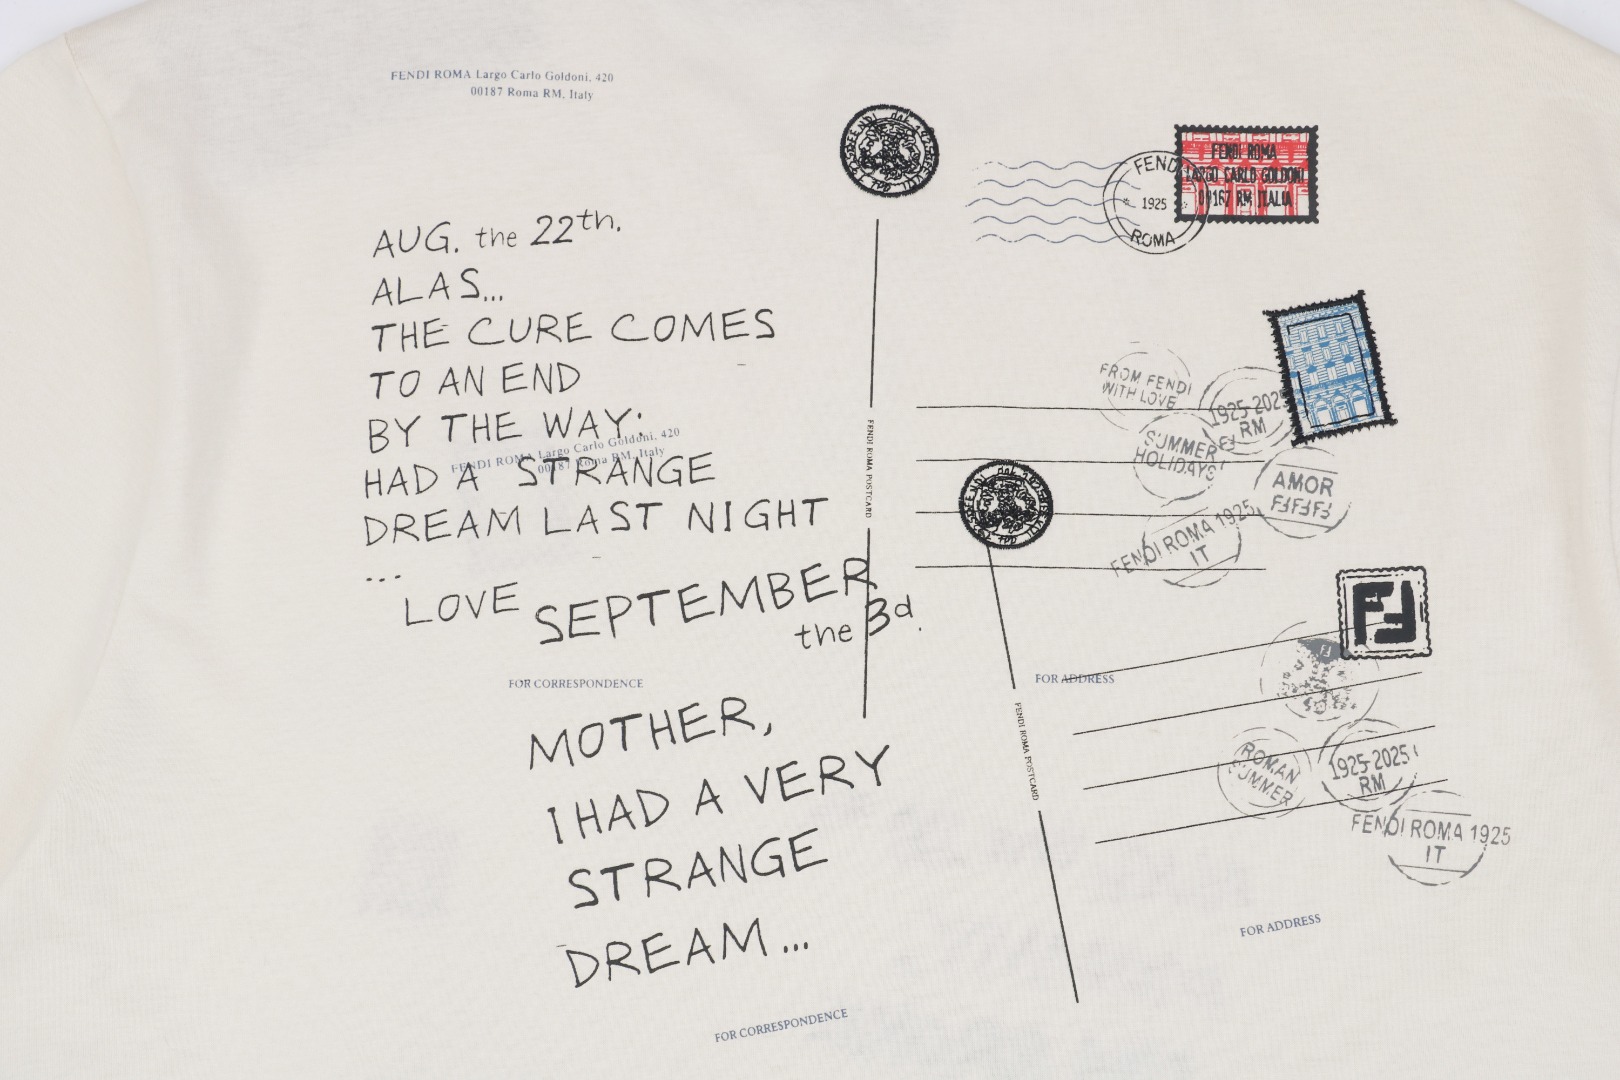 FENDI ROMA Largo Carlo Goldoni, 420
00187 Roma RM, Italy
AUG. the 22th.
ALAS...
THE CURE COMES
TO AN END
BY THE WAY:
HAD A STRANGE
DREAM LAST NIGHT
...
LOVE
FENDI ROMA Largo Carlo Goldoni, 420
00187 Roma RM, Italy
SEPTEMBER
the 3d.
FOR CORRESPONDENCE
MOTHER,
I HAD A VERY
STRANGE
DREAM...
FOR CORRESPONDENCE
FENDI ROMA POSTCARD
FENDI
1925
ROMA
FENDI ROMA
LARGO CARLO GOLDONI
00167 RM ITALIA
FROM FENDI
WITH LOVE
1925-2025
RM
SUMMER
HOLIDAYS
AMOR
FENDI ROMA 1925
IT
FOR ADDRESS
FENDI ROMA POSTCARD
ROMAN
SUMMER
1925-2025
RM
FENDI ROMA 1925
IT
FOR ADDRESS